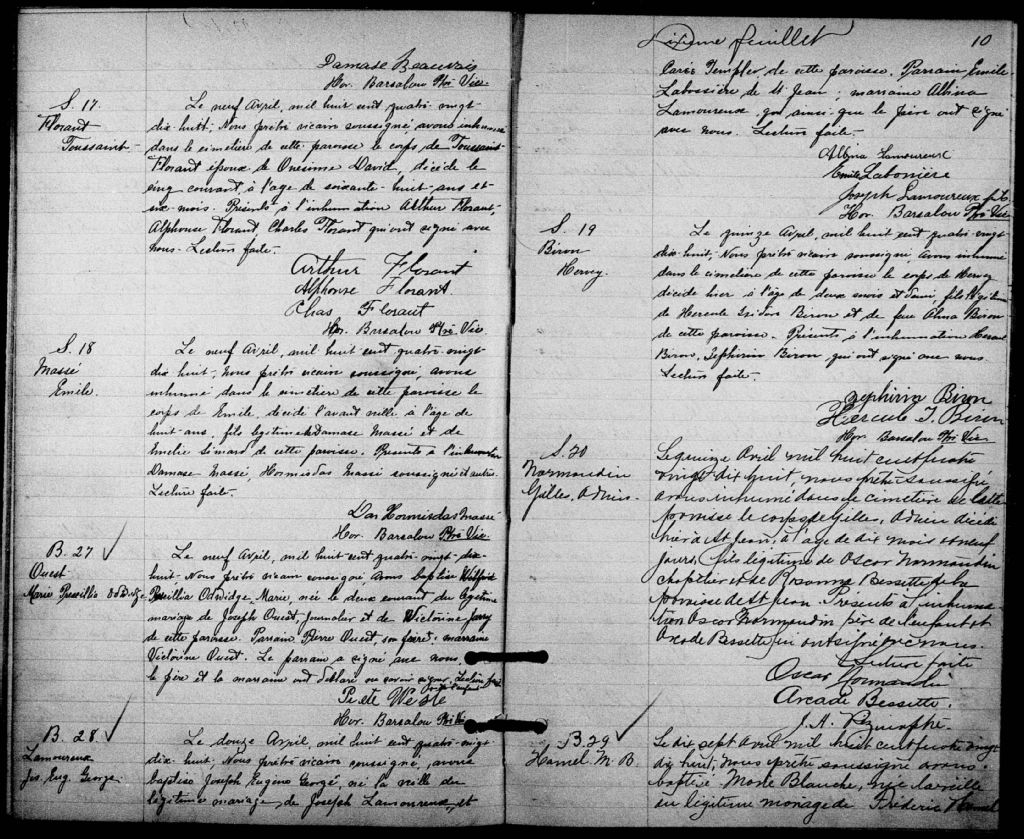 Damase Beauvais
Hor. Barsalou Ptre Vic
S. 17.
Florant
Toussaint
Le neuf Avril, mil huit cent quatre vingt-
dix-huit, Nous prêtre vicaire soussigné avons inhumé
dans le cimetière de cette paroisse le corps de Toussaint
Florant époux de Onesime David, décidé le
cinq courant, à l'age de soixante-huit-ans et
six-mois. Présents à l'inhumation Arthur Florant,
Alphonse Florant, Charles Florant qui ont signé avec
nous. Lecture faite.
Arthur Florant
Alphonse Florant.
Chas Florant
Hor. Barsalou Ptre Vic
S. 18
Massé
Emile.
Le neuf Avril, mil huit cent quatre-vingt
dix-huit, Nous prêtre vicaire soussigné, avons
inhumé dans le cimetière de cette paroisse le
corps de Emile, décidé l'avant veille à l'âge de
huit-ans, fils légitime de Damase Massé et de
de cette paroisse. Présents à l'inhumation
Damase Massé, Hormisdas Massé soussignés et autres.
Lecture faite.
Hormisdas Massé
Hor. Barsalou Ptre Vic
B. 27
Ouest
Marie
Le neuf Avril, mil huit-cent quatre-vingt-dix-
huit-Nous prêtre vicaire soussigné avons baptisé
Marie, née le deux courant du légitime
mariage de Joseph Ouest, Journalier et de Victorine Jarry
de cette paroisse. Parrain Pierre Ouest, son frère, marraine
Victorine Ouest. Le parrain a signé avec nous
le père et la marraine ont déclaré ne savoir signer. Lecture faite
Hor. Barsalou Ptre Vic
B. 28
Lamoureux
Jos. Eug. George.
Le douze Avril, mil huit cent quatre-vingt-
dix-huit. Nous prêtre vicaire soussigné, avons
baptisé Joseph Eugène George, né la veille du
légitime mariage, de Joseph Lamoureux, et
Dixième feuillet
10
Templer de cette paroisse. Parrain Emile
de St Jean; marraine Albina
Lamoureux qui ainsi que le père ont signé
avec nous. Lecture faite.
Albina Lamoureux
Emile
Joseph Lamoureux fils
Hor. Barsalou Ptre Vic
S. 19
Biron
Hervey.
Le quinze Avril, mil huit cent quatre-vingt-
dix-huit, Nous prêtre vicaire soussigné avons inhumé
dans le cimetière de cette paroisse le corps de Hervey
décidé hier à l'âge de deux mois et demi, fils légitime
de Hercule Isidore Biron et de feu Alma Biron
de cette paroisse. Présents à l'inhumation Hercule
Biron, Zéphirin Biron qui ont signé avec nous.
Lecture faite.
Zephirin Biron
Hercule I. Biron
Hor. Barsalou Ptre Vic
S. 20
Normandin
Gilles, Adrien.
Le quinze Avril mil huit cent quatre
vingt dix huit, nous prêtre soussigné
avons inhumé dans le cimetière de cette
paroisse le corps de Gilles, Adrien décidé
hier à St Jean, à l'age de dix mois et neuf
jours, fils légitime de Oscar Normandin
chapelier et de Rosanna Bessette de la
paroisse de St Jean. Présents à l'inhuma-
tion Oscar Normandin père de l'enfant et
Arcade Bessette qui ont signé avec nous.
Lecture faite
Oscar Normandin
Arcade Bessette.
J. A.
B. 29
Hamel M. B.
Le dix sept Avril mil huit cent quatre vingt
dix huit, nous prêtre soussigné avons
baptisé Marie Blanche, née la veille
en légitime mariage de Fréderic Hamel